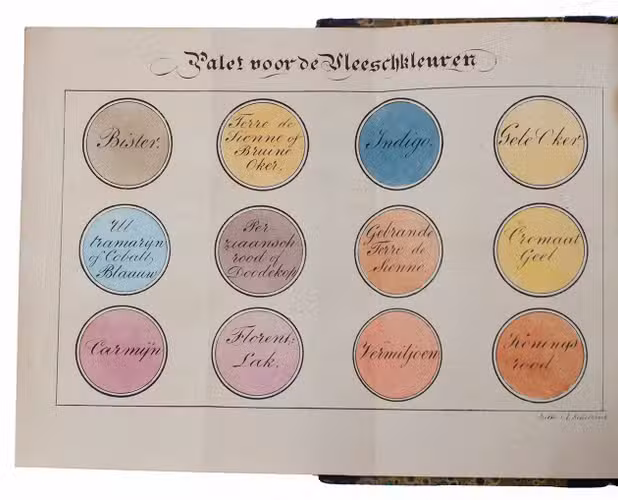 Palet voor de Vleeschkleuren
Bister.
Terre de
Sienne of
Bruine
Oker.
Indigo.
Gele Oker
Ul
tramarijn
of Cobalt,
Blaauw
Per
ziaansch
rood of
Doodekop
Gebrande
Terre de
Sienne.
Cromaat
Geel.
Carmijn
Florent:
Lak.
Vermiljoen
Konings
rood